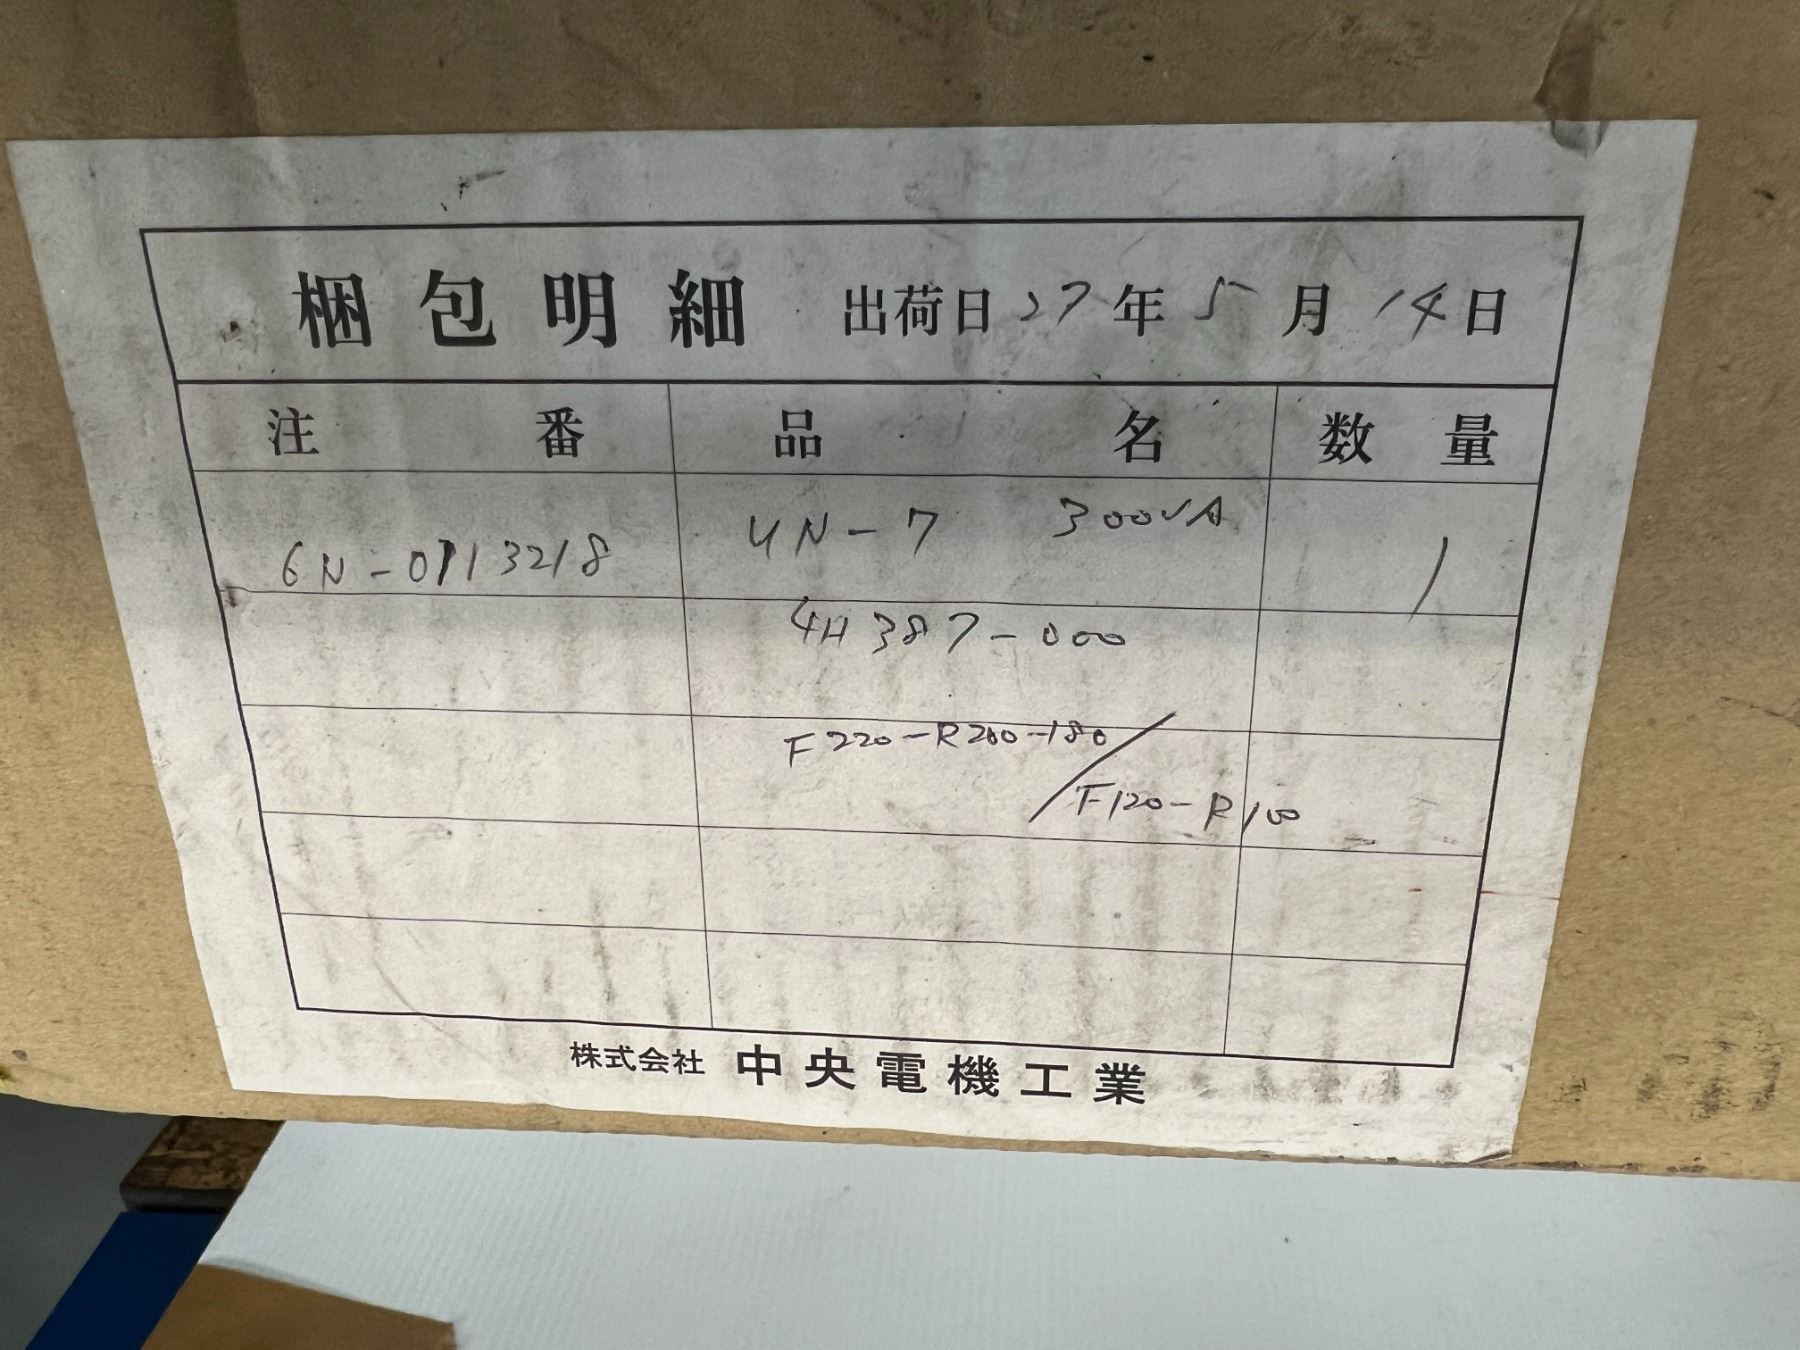 梱包明細 出荷日 27年 5月 14日
注番 品名 数量
6N-0713218 UN-7 300VA 1
4H387-000
F220-R200-180
/F120-R100
株式会社 中央電機工業